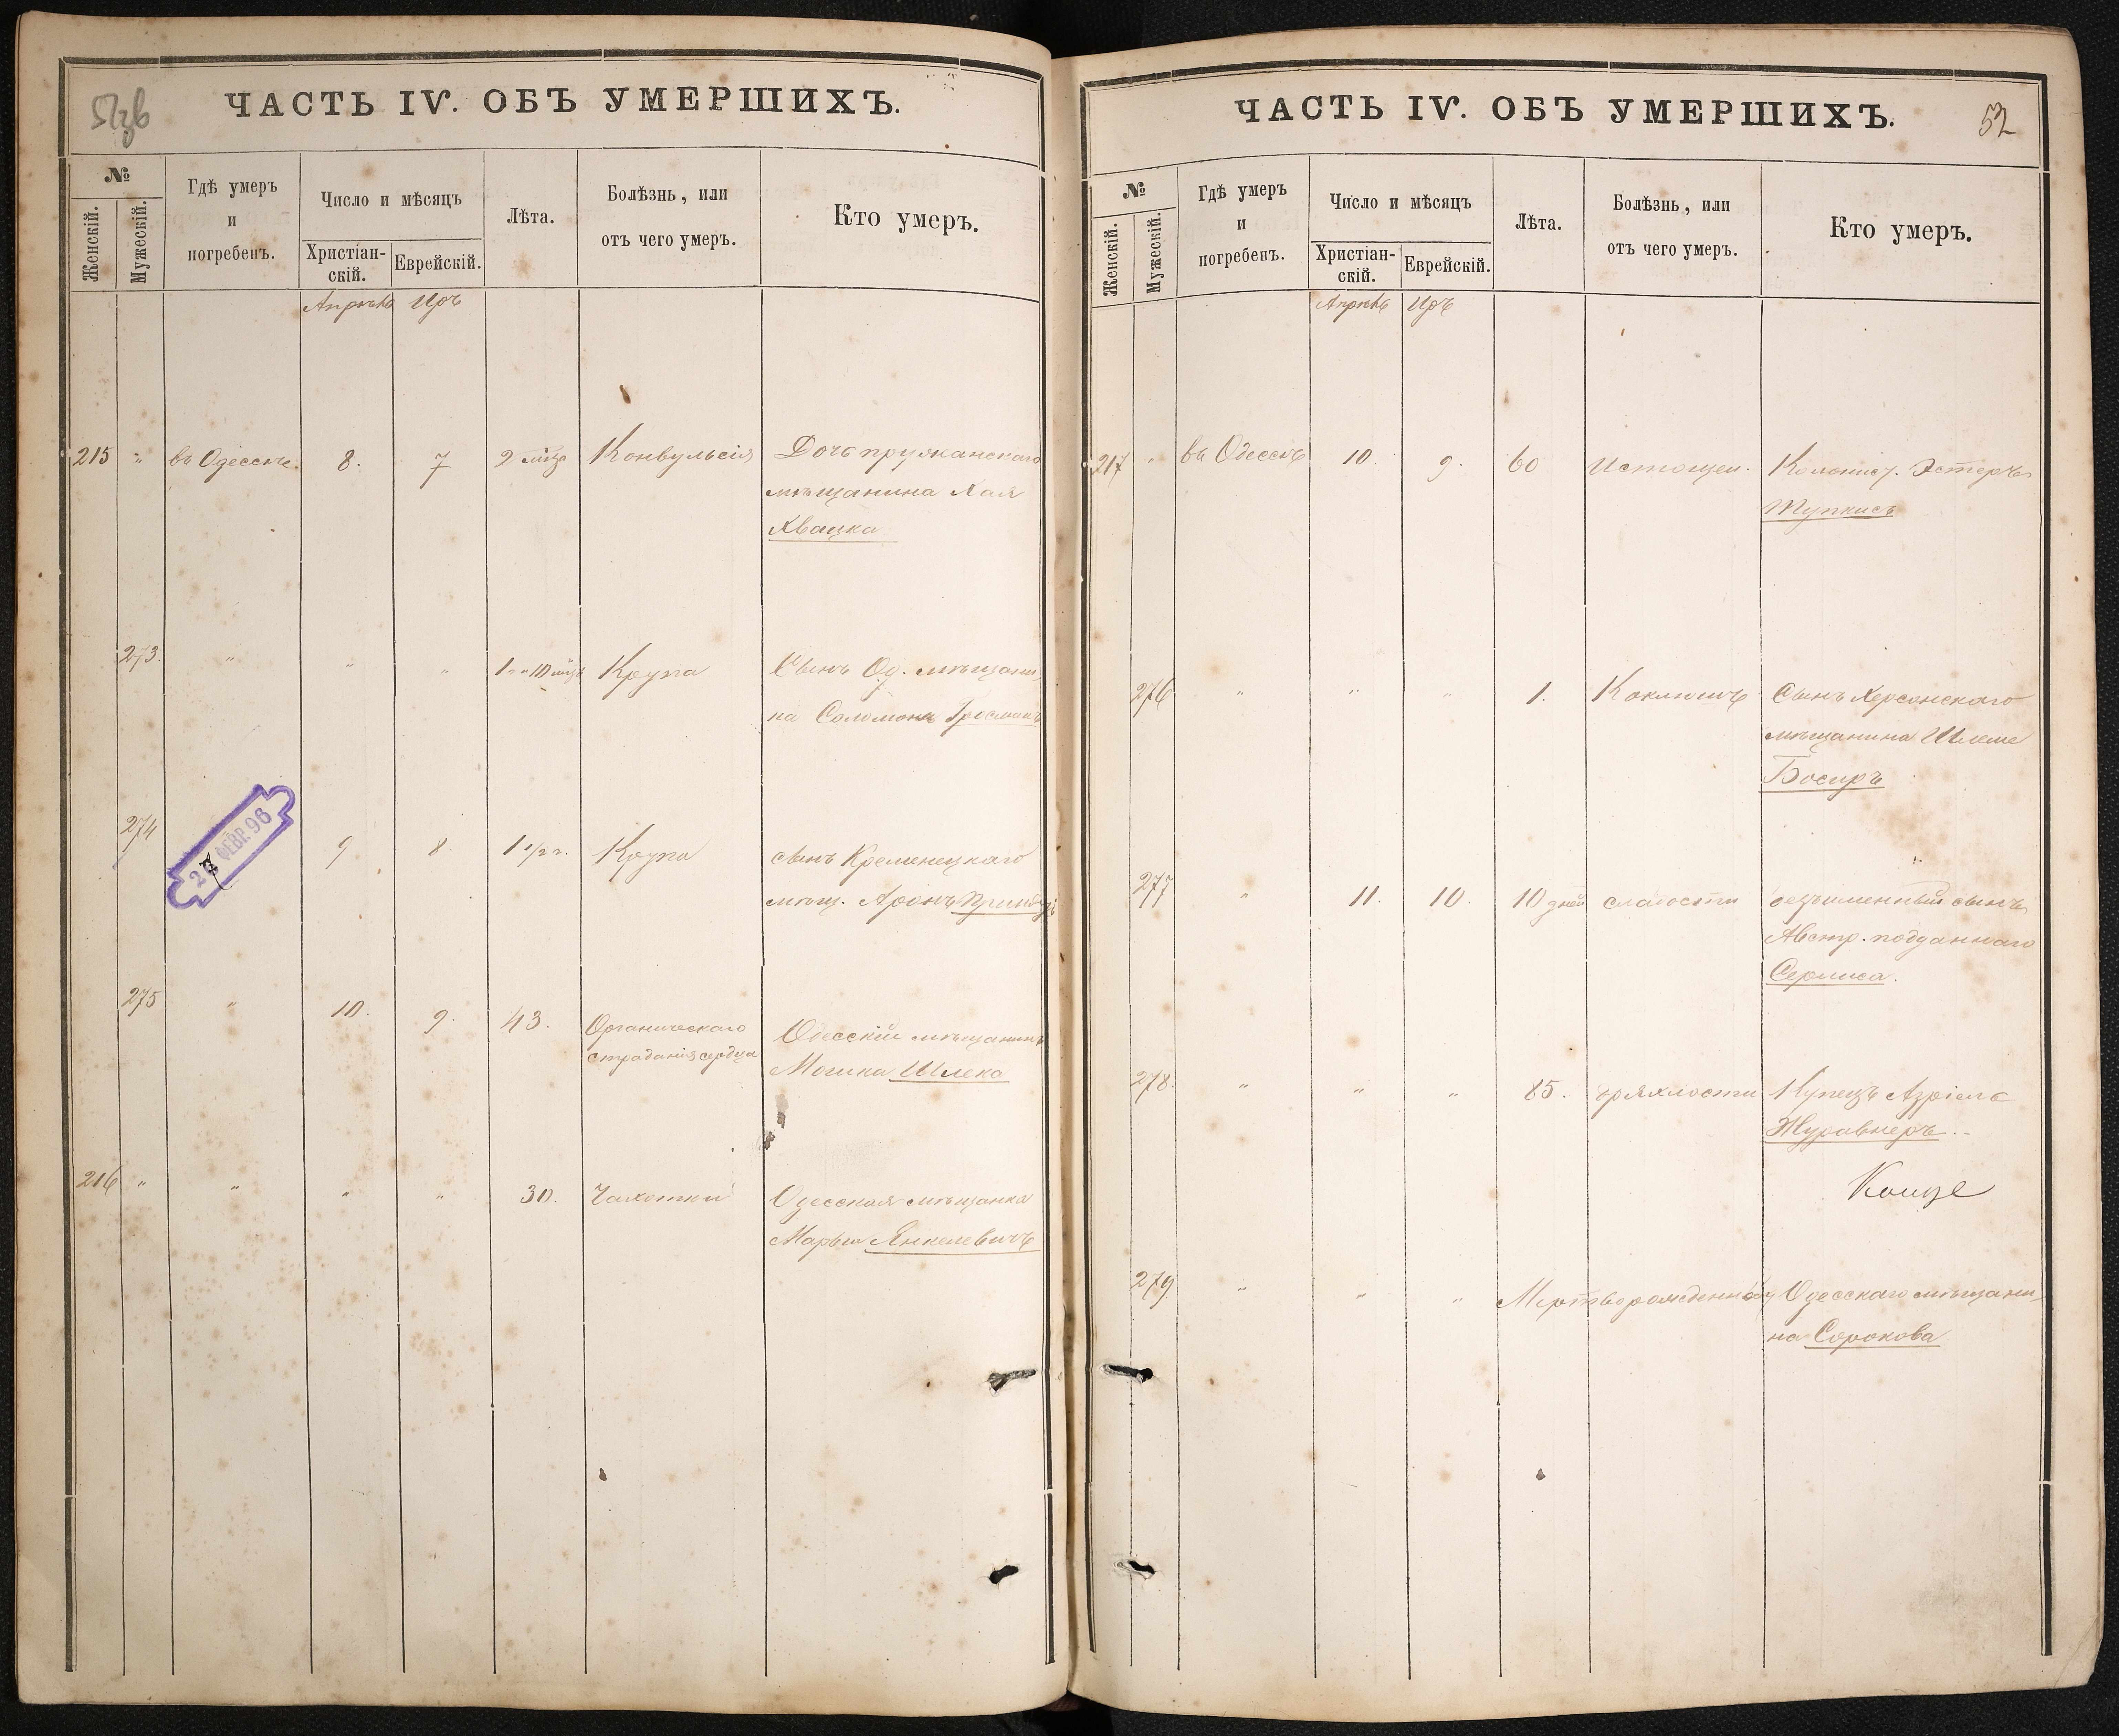 ЧАСТЬ IV. ОБЪ УМЕРШИХЪ.
№
Женскій.
Мужескій.
Гдѣ умеръ
и
погребенъ.
Число и мѣсяцъ
Христіан-
скій.
Еврейскій.
Лѣта.
Болѣзнь, или
отъ чего умеръ.
Кто умеръ.
Апрѣль Иръ
215 " въ Одессѣ. 8. 7 2 мѣс Конвульсія Дочь пружанскаго
мѣщанина Хая
Хвацка
273. " " " Крупа Сынъ Од. мѣщани
на Соломонъ Гросманъ
274 9 8. 1 1/2 г. Крупа сынъ Кременецкаго
мѣщ. Аронъ
26 ФЕВР. 96
275 " 10. 9. 43. Органическаго Одесскій мѣщанинъ
страданія сердца Мошка Шлека
216 " " " " 30. Чахотки Одесская мѣщанка
Марьм Янкелевичъ
ЧАСТЬ IV. ОБЪ УМЕРШИХЪ.
52
№
Женскій.
Мужескій.
Гдѣ умеръ
и
погребенъ.
Число и мѣсяцъ
Христіан-
скій.
Еврейскій.
Лѣта.
Болѣзнь, или
отъ чего умеръ.
Кто умеръ.
Апрѣль Иръ
217 " въ Одессѣ 10. 9. 60 Истощен. Колонист. Эстеръ
276 " " " 1. Коклюшъ Сынъ Херсонскаго
мѣщанина Шлеме
Босиръ
277 " 11. 10. 10 дней слабости безъименный сынъ
Австр. подданнаго
278. " " " 85. дряхлости Купецъ Азріель
Журавнеръ
279 " " " Мертворожденный Одесскаго мѣщани
на Сорокова